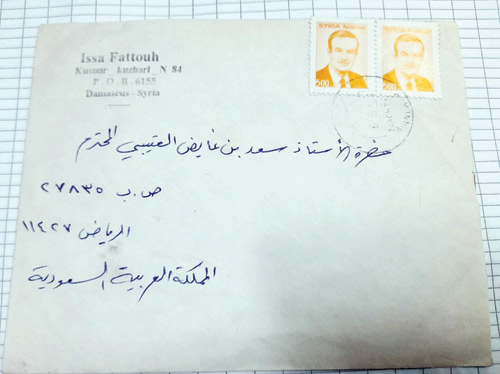 Issa Fattouh
Kusour kuzbari N 84
P.O.B 6155
Damascus - Syria
SYRIA
500
SYRIA
500
حضرة الأستاذ سعد بن عايض العتيبي المحترم
ص.ب ٢٧٨٣٥
الرياض ١١٤٢٧
المملكة العربية السعودية